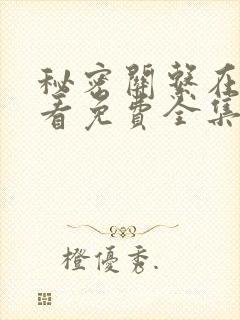 秘密關繫在
看免費全集
橙優秀.